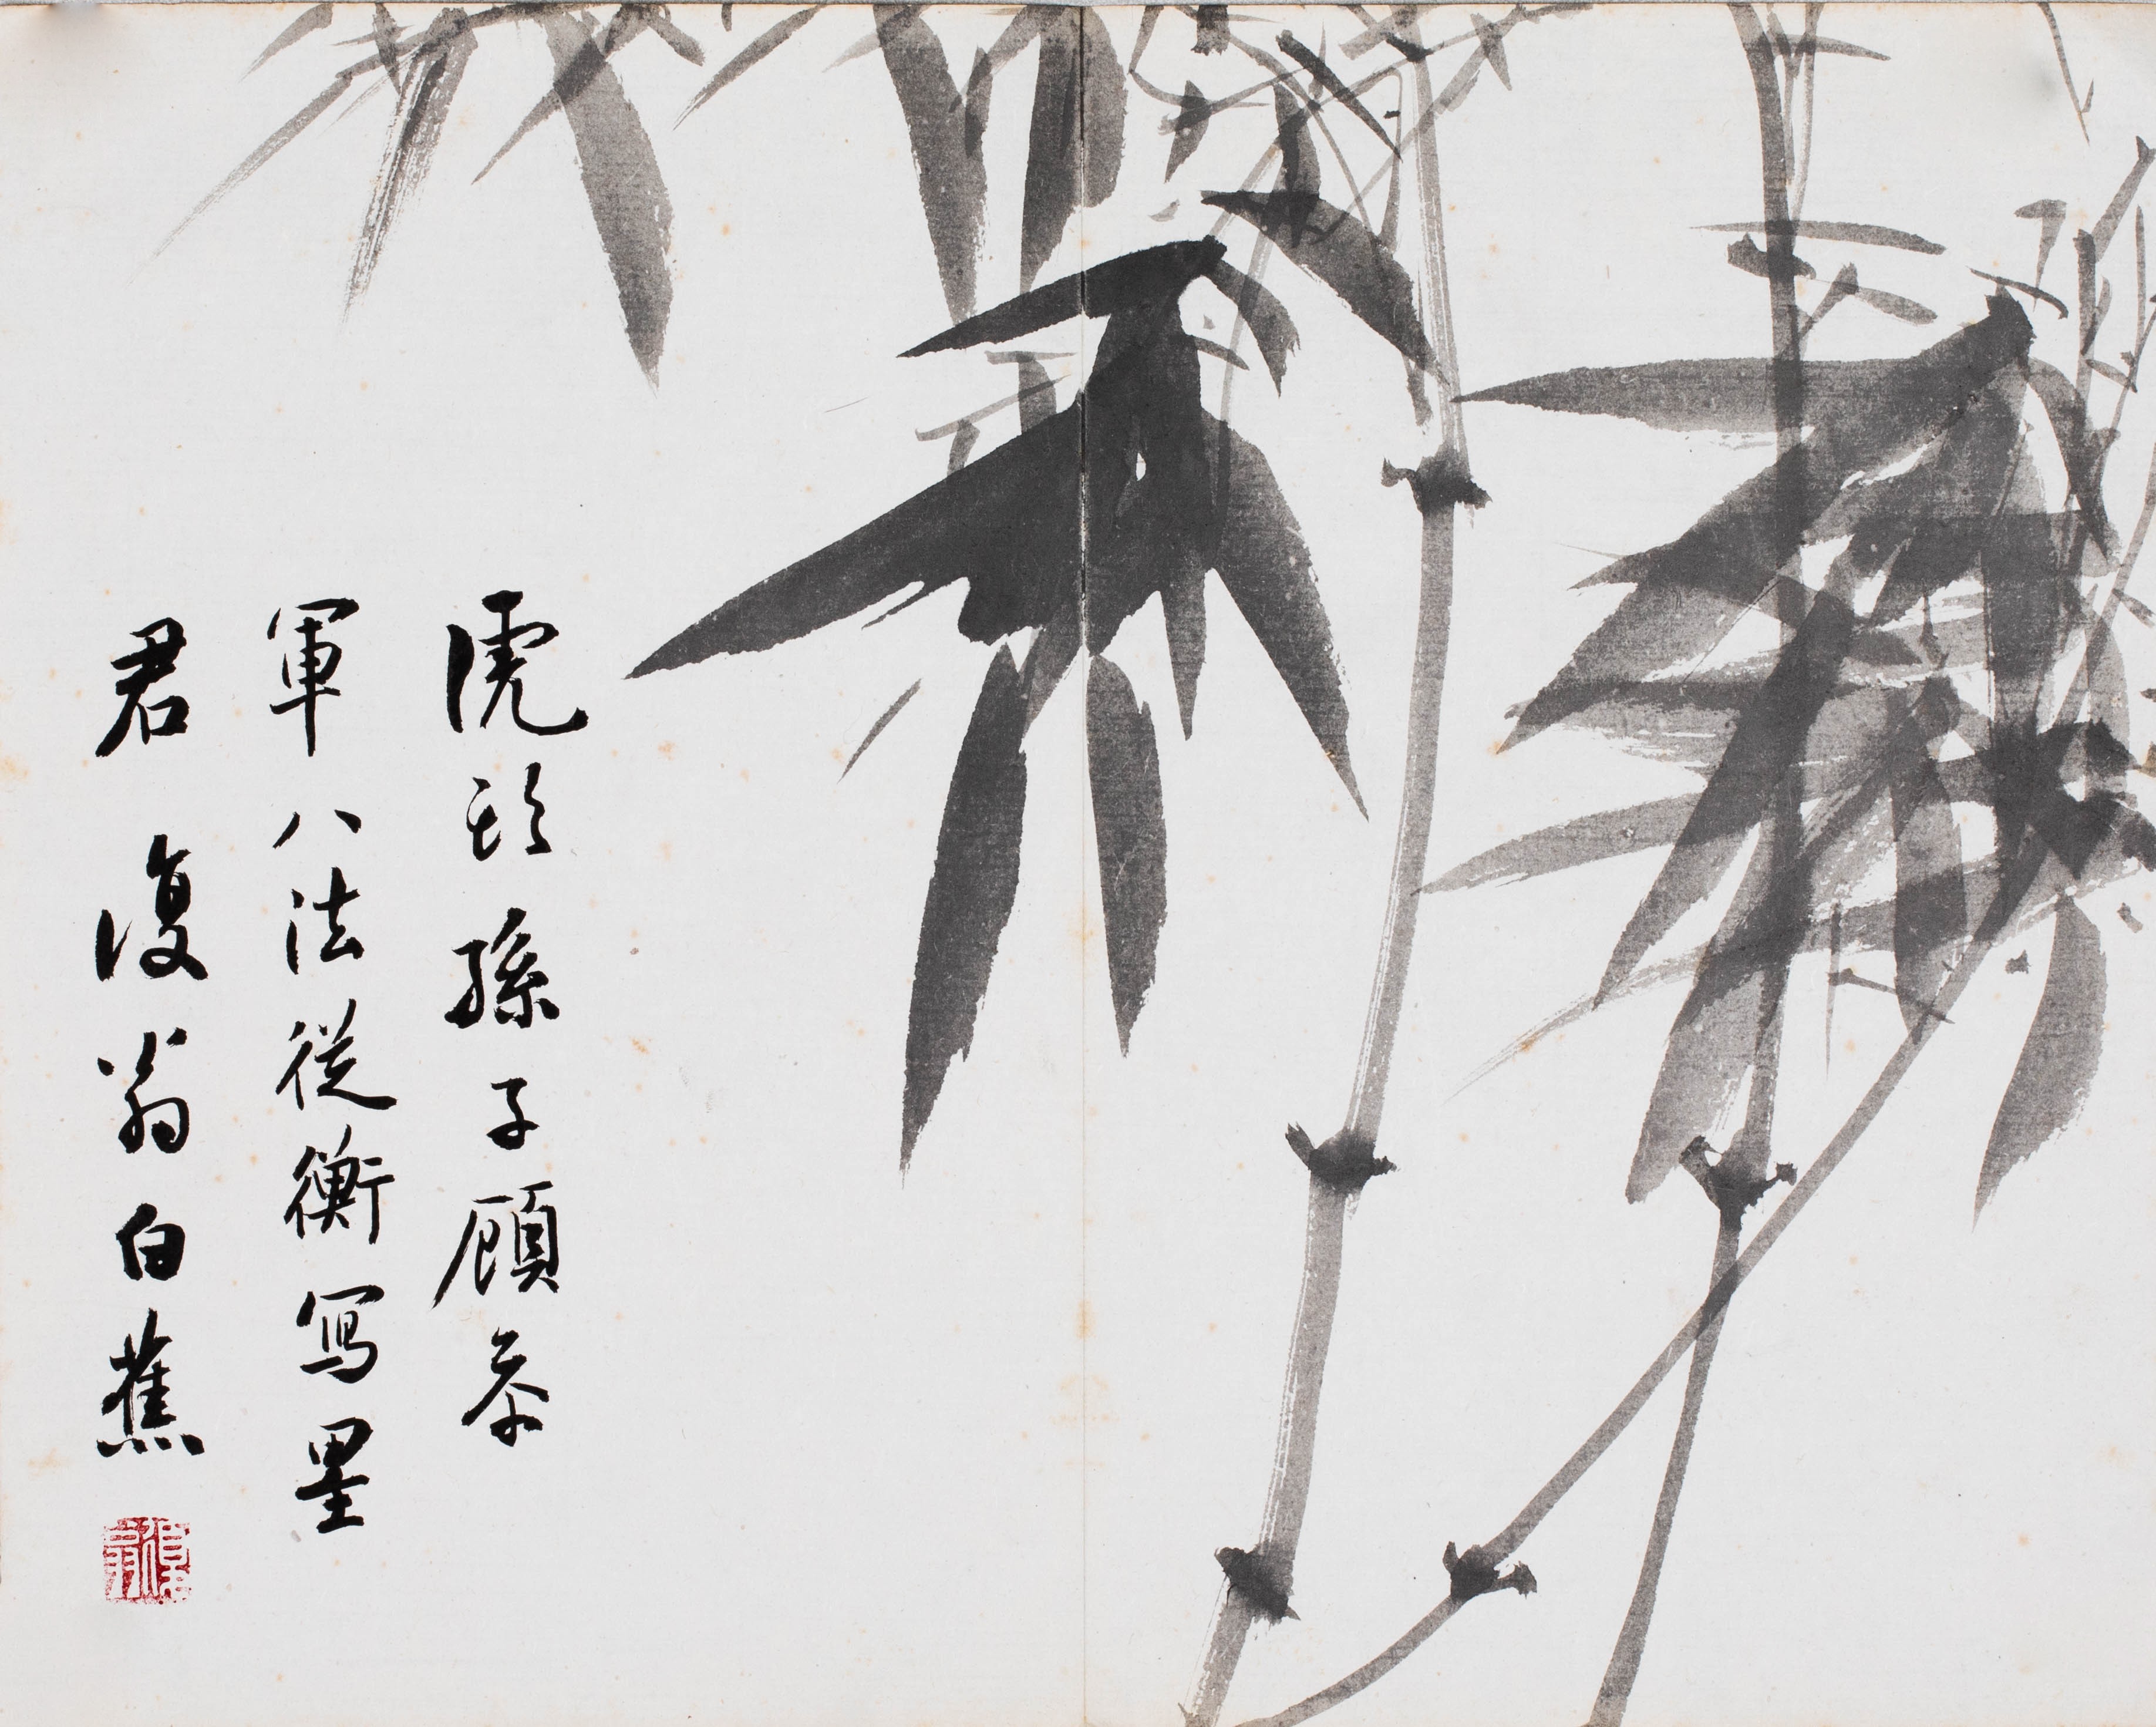 虎頭孫子顧參
軍八法從衡寫墨
君 復翁白蕉
復翁